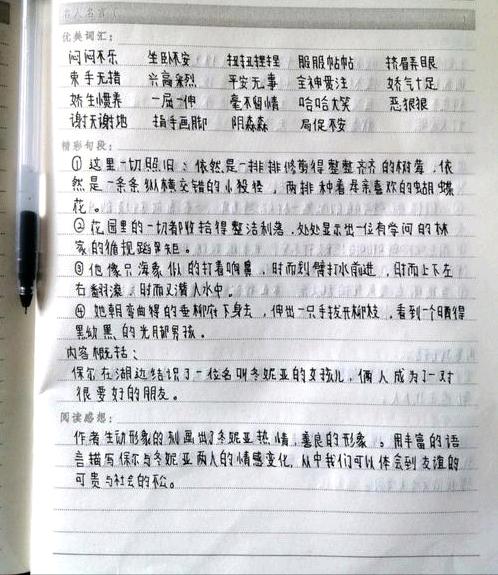 名人名言
优美词汇：
闷闷不乐 坐卧不安 扭扭捏捏 服服帖帖 挤眉弄眼
束手无措 兴高采烈 平安无事 全神贯注 娇气十足
娇生惯养 一屈一伸 毫不留情 哈哈大笑 恶狠狠
谢天谢地 指手画脚 阴森森 局促不安
精彩句段：
①这里一切照旧：依然是一排排修剪得整整齐齐的树莓，依
然是一条条纵横交错的小径，两排种着母亲喜欢的蝴蝶
花。
②花园里的一切都收拾得整洁利落，处处显示出一位有学问的林
家的循规蹈矩。
③他像只海象似的打着响鼻，时而划臂打水前进，时而上下左
右翻滚，时而又潜入水中。
④她朝弯曲得的垂柳俯下身去，伸出一只手拨开柳枝，看到一个晒得
黑黝黑的光脚男孩。
内容概括：
保尔在湖边结识了一位名叫冬妮亚的女孩儿，俩人成为了一对
很要好的朋友。
阅读感想：
作者生动形象的刻画出了冬妮亚热情，善良的形象。用丰富的语
言描写保尔与冬妮亚两人的情感变化，从中我们可以体会到友谊的
可贵与社会的不公。